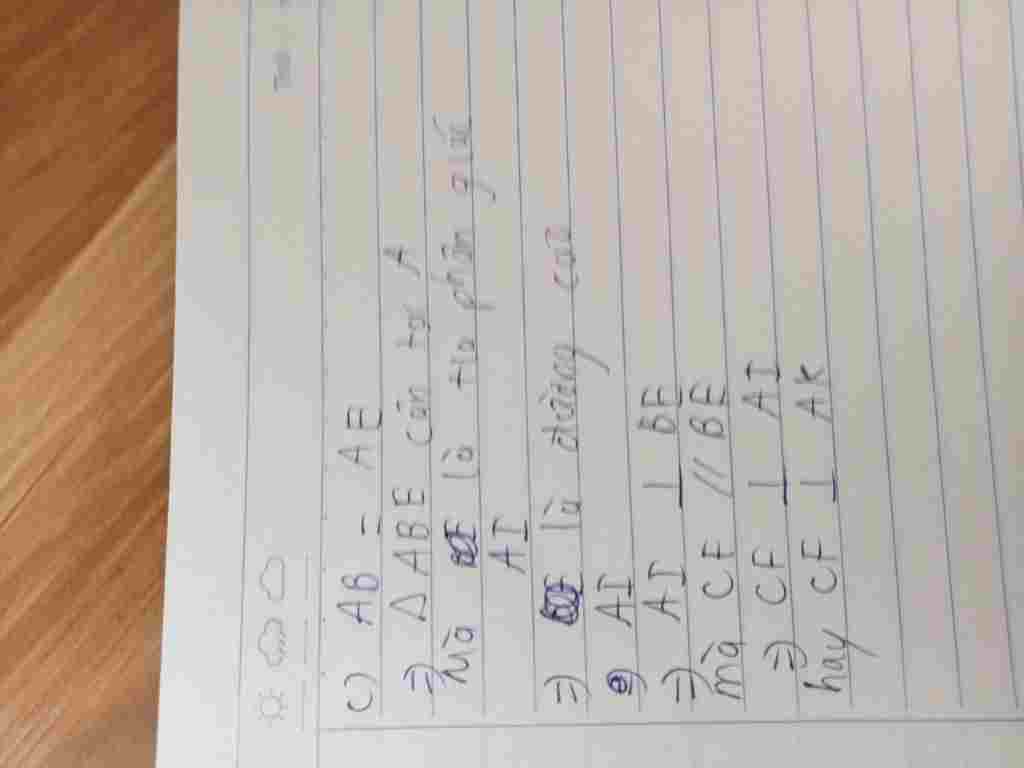 c) AB = AE
=) △ABE cân tại A
Mà là tia phân giác
AI
=) là đường cao
AI
=) AI ⊥ BE
mà CF // BE
=) CF ⊥ AI
hay CF ⊥ AK